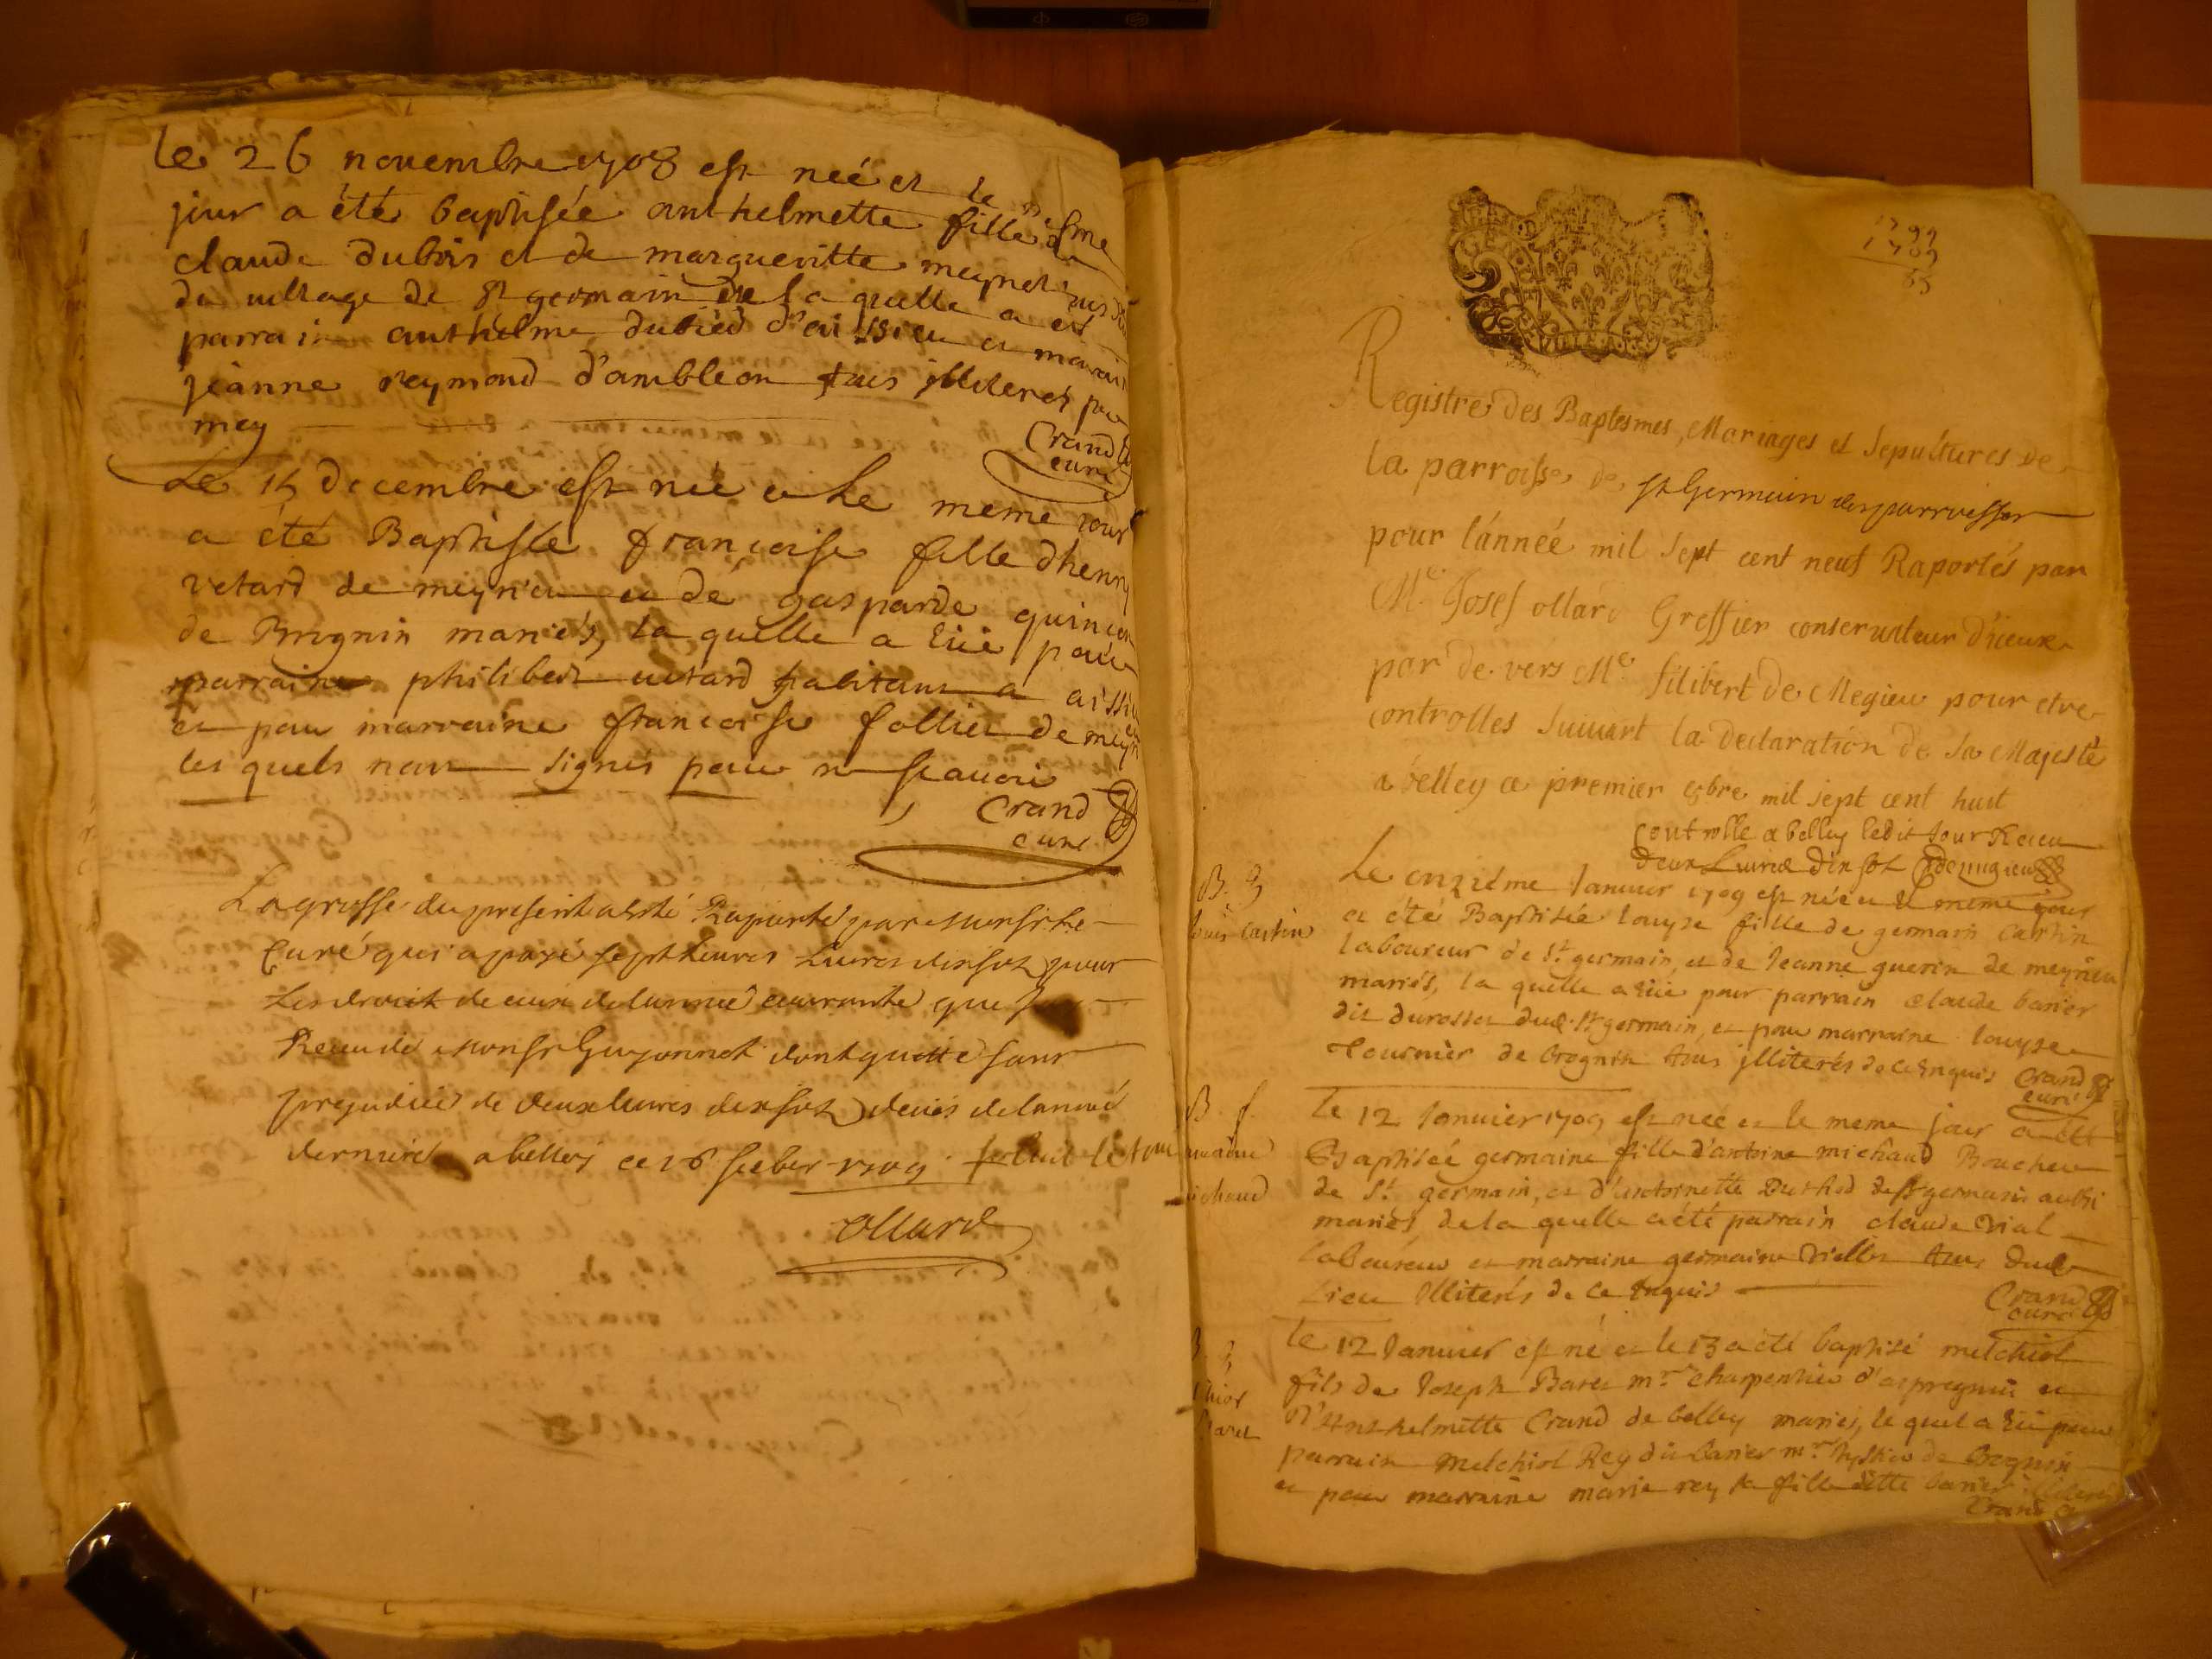 le 26 novembre 1708 est neé et le
jour a été baptisée anthelmette fille de
claude dubois et de margueritte meynet
du village de st germain de la quelle a été
parrain anthelme dubied d'aissieu et marain
jeanne reymond d'ambleon tous illiteres par
moy
Crand
curé
Le 15 decembre est neé et le meme jour
a été Baptisée françoise fille dhenry
vetard de meyrieu et de gasparde quinson
de Brognin mariés, la quelle a eüe pour
parrain philibert vetard habitant a aissieu
et pour marraine françoise follier de
les quels nont signés pour ne scauoir
Crand
curé
La grosse du present a esté Raporté par monsr le
Curé qui a payé sept livres dix solz pour
Les droits de lannée courante que
Receu de monsr Guyonnet dont quitte sans
prejudice de deux livres dix solz deües de lannée
derniere a belley ce 16 1709
Ollard
1709
Registre des Baptesmes, Mariages et Sepultures de
la parroisse de st Germain les parroisses
pour l'année mil sept cent neuf Raportés par
Me Josef ollard Greffier conservateur d'iceux
par de vers Me filibert de Megieu pour etre
controlles suivant la declaration de sa Majesté
a belley ce premier 8bre mil sept cent huit
Controlle a belley ledit jour Receu
deux Livres dix sol
B.
Le onziéme Januier 1709 est née et le meme jour
a été Baptisée louyse fille de germain cartin
laboureur de st germain, et de Jeanne guerin de meyrieu
mariés, la quelle a eüe pour parrain claude banier
dit durosset dud. st germain, et pour marraine louyse
tournier de brognin tous illiterés de ce enquis
Crand
curé
B. f.
le 12 Januier 1709 est neé et le meme jour a été
Baptiseé germaine fille d'antoine michaud Boucher
michaud
de st germain, et d'antoinette de st germain aussi
mariés, de la quelle a été parrain claude vial
laboureur et marraine germaine tous dud
Lieu illiterés de ce enquis
Crand
curé
le 12 Januier est né et le 13 a été baptisé melchiol
fils de Joseph Baret mr charpentier d'arpregnin et
d'anthelmette Crand de belley mariés, le quel a eü pour
parrain melchiol Rey dit banier mr de Brognin
et pour marraine marie rey sa fille ditte banier
Crand